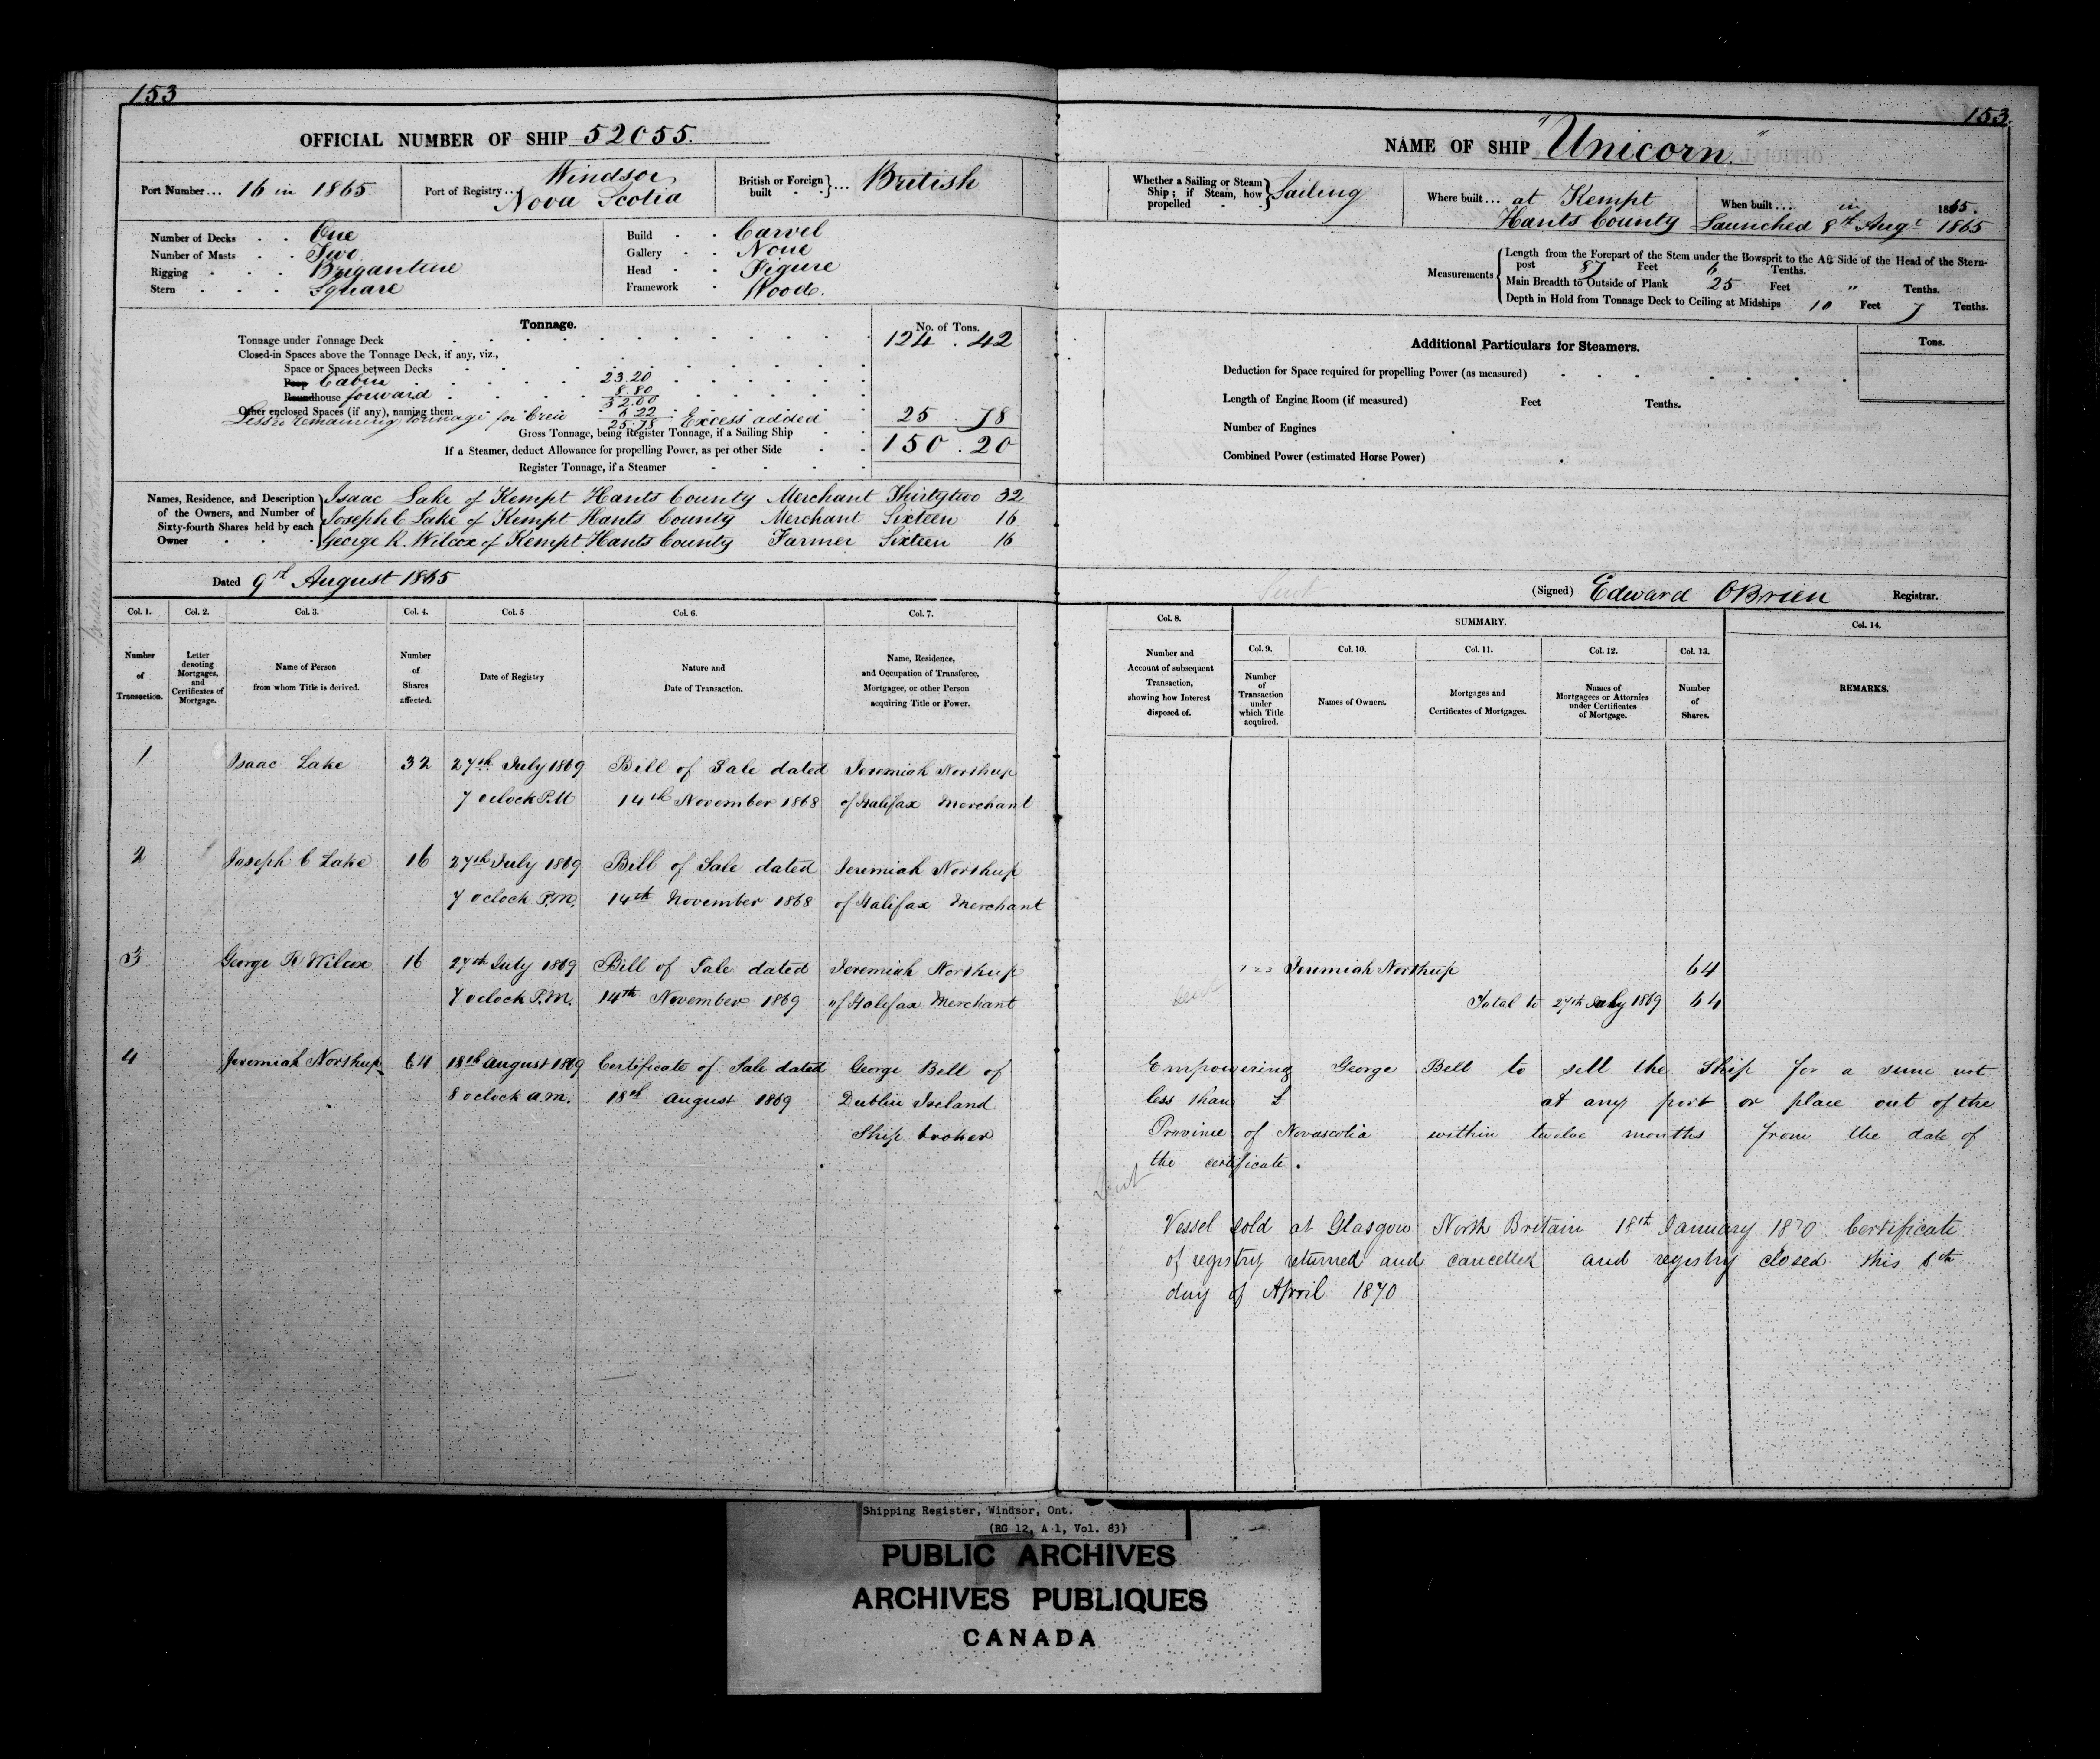 153
OFFICIAL NUMBER OF SHIP 52055.
Port Number... 16 in 1865
Port of Registry... Windsor,
Nova Scotia
British or Foreign built }... British
Number of Decks . . One
Number of Masts . . Two
Rigging . . . Brigantine
Stern . . . Square
Build . . Carvel
Gallery . . None
Head . . Figure
Framework . Wood.
Tonnage.
No. of Tons.
Tonnage under Tonnage Deck 124 . 42
Closed-in Spaces above the Tonnage Deck, if any, viz.,
Space or Spaces between Decks
Poop Cabin 23.20
Roundhouse forward 8.80
32.00
Other enclosed Spaces (if any), naming them
remaining tonnage for Crew 6 22
25.78 Excess added 25 . 78
Gross Tonnage, being Register Tonnage, if a Sailing Ship 150 . 20
If a Steamer, deduct Allowance for propelling Power, as per other Side
Register Tonnage, if a Steamer
Names, Residence, and Description of the Owners, and Number of Sixty-fourth Shares held by each Owner
Isaac Lake of Kempt Hants County Merchant Thirtytwo 32
Joseph C Lake of Kempt Hants County Merchant Sixteen 16
George R. Wilcox of Kempt Hants County Farmer Sixteen 16
Dated 9th August 1865
Col. 1. Col. 2. Col. 3. Col. 4. Col. 5 Col. 6. Col. 7.
Number of Transaction.
Letter denoting Mortgages, and Certificates of Mortgage.
Name of Person from whom Title is derived.
Number of Shares affected.
Date of Registry
Nature and Date of Transaction.
Name, Residence, and Occupation of Transferee, Mortgagee, or other Person acquiring Title or Power.
1 Isaac Lake 32 27th July 1869 Bill of Sale dated Jeremiah Northup
7 oclock P.M 14th November 1868 of Halifax Merchant
2 Joseph C Lake 16 27th July 1869 Bill of Sale dated Jeremiah Northup
7 oclock P.M. 14th November 1868 of Halifax Merchant
3 George R Wilcox 16 27th July 1869 Bill of Sale dated Jeremiah Northup
7 oclock P.M. 14th November 1869 of Halifax Merchant
4 Jeremiah Northup 64 18th August 1869 Certificate of Sale dated George Bell of
8 oclock a.m. 18th August 1869 Dublin Ireland
Ship broker
153.
NAME OF SHIP "Unicorn"
Whether a Sailing or Steam Ship; if Steam, how propelled } Sailing
Where built... at Kempt
Hants County
When built.... in 1865.
Launched 8th Augt 1865
Measurements
Length from the Forepart of the Stem under the Bowsprit to the Aft Side of the Head of the Stern-
post 87 Feet 6 Tenths.
Main Breadth to Outside of Plank 25 Feet " Tenths.
Depth in Hold from Tonnage Deck to Ceiling at Midships 10 Feet 7 Tenths.
Additional Particulars for Steamers.
Tons.
Deduction for Space required for propelling Power (as measured)
Length of Engine Room (if measured) Feet Tenths.
Number of Engines
Combined Power (estimated Horse Power)
Sent
(Signed) Edward OBrien Registrar.
Col. 8. SUMMARY. Col. 14.
Number and Account of subsequent Transaction, showing how Interest disposed of.
Col. 9. Col. 10. Col. 11. Col. 12. Col. 13.
Number of Transaction under which Title acquired.
Names of Owners.
Mortgages and Certificates of Mortgages.
Names of Mortgagees or Attornies under Certificates of Mortgage.
Number of Shares.
REMARKS.
1 2 3 Jeremiah Northup 64
Sent
Total to 27th July 1869 64
Empowering George Bell to sell the Ship for a sum not
less than £ at any port or place out of the
Province of Novascotia within twelve months from the date of
the certificate.
Sent
Vessel sold at Glasgow North Britain 18th January 1870 Certificate
of registry returned and cancelled and registry closed this 8th
day of April 1870
Shipping Register, Windsor, Ont.
(RG 12, A 1, Vol. 83)
PUBLIC ARCHIVES
ARCHIVES PUBLIQUES
CANADA